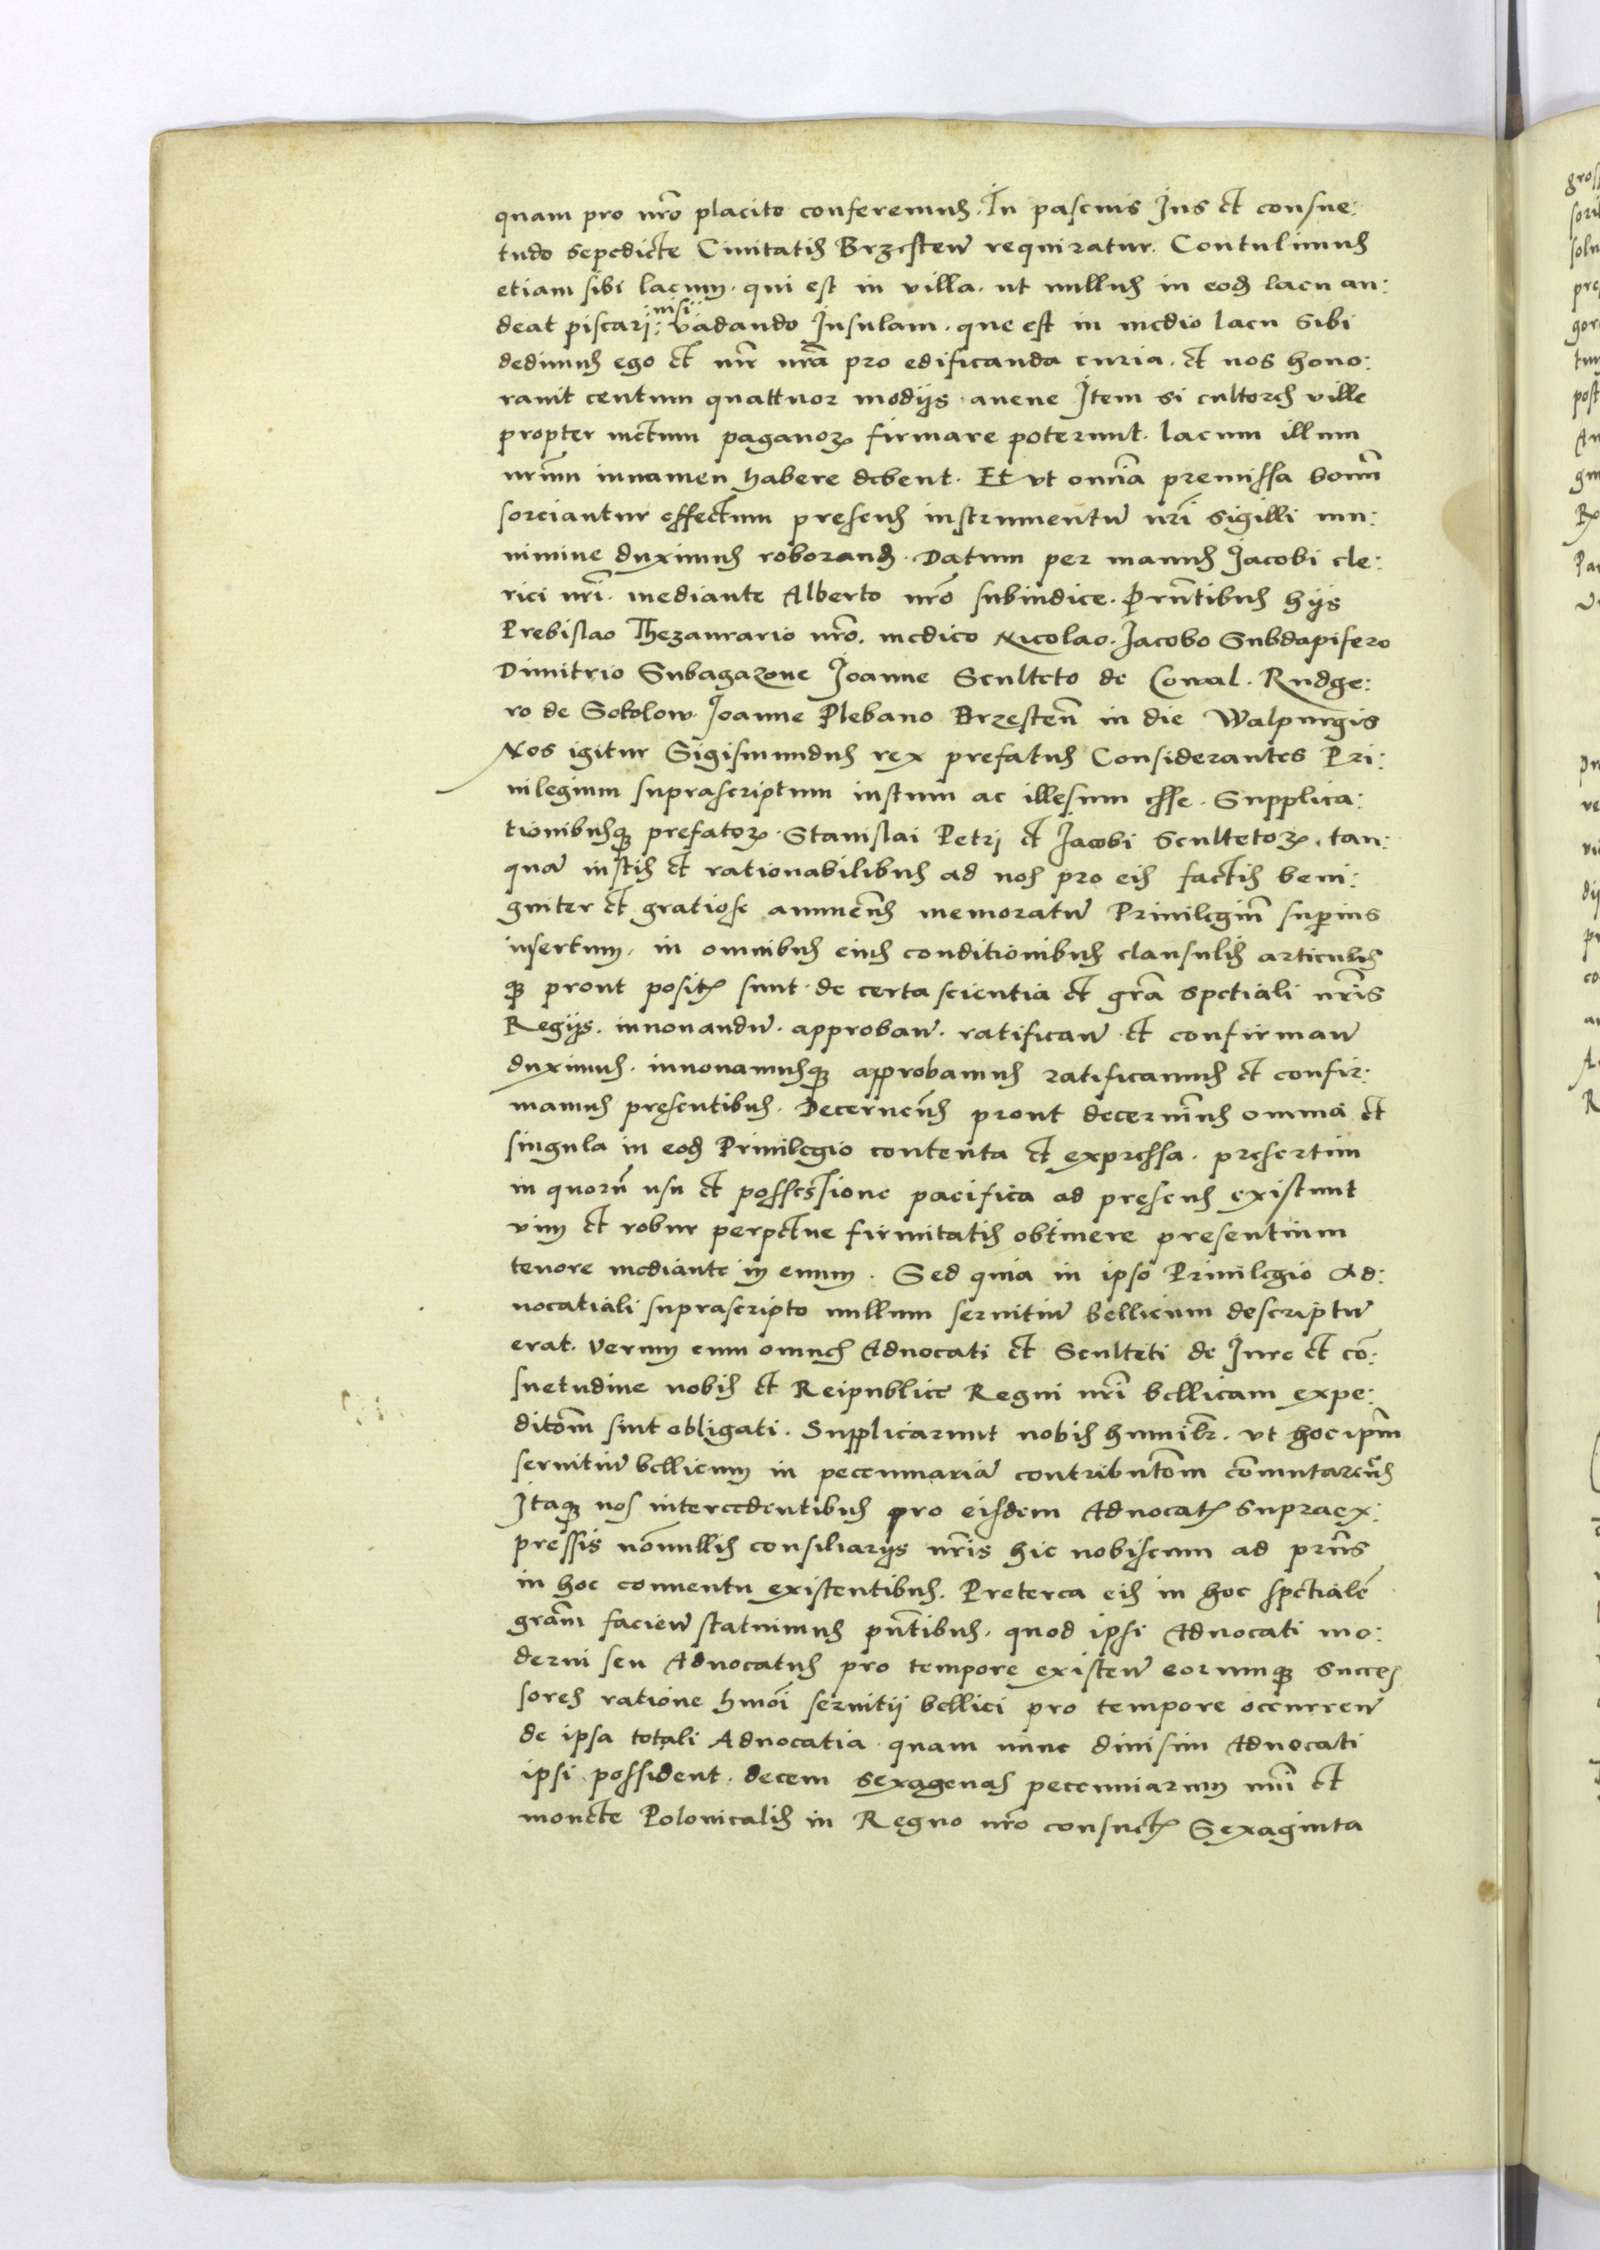 quam pro nro placito conferemus. In pascuis Ius et consue:
tudo sepedicte Civitatis Brzesten requiratur. Contulimus
etiam sibi lacum. qui est in villa. ut nullus in eod lacu au:
deat piscari :nisi: vadando Insulam. que est in medio lacu Sibi
dedimus ego et mr nra pro edificanda curia. et nos hono:
ravit centum quattuor modijs avene Item si cultores ville
propter metum paganoꝝ firmare poterunt. lacum illum
nrum iuvamen habere debent. Et ut omia premissa bonum
sorciantur effectum presens instrumentu nri sigilli mu:
nimine duximus roborand. Datum per manus Jacobi cle:
rici nri. mediante Alberto nro subiudice. Prntibus hijs
Prebislao Thezaurario nro. medico Nicolao. Jacobo Subdapifero
Dimitrio Subagazone Joanne Sculteto de Cowal. Rudge:
ro de Sokolow Joanne Plebano Brzesten in die Walpurgis
Nos igitur Sigismundus rex prefatus Considerantes Pri:
vilegium suprascriptum iustum ac illesum esse. Supplica:
tionibusq prefatoꝝ. Stanislai Petri et Jacobi Scultetoꝝ, tan:
qua iustis et rationabilibus ad nos pro eis factis beni:
gniter et gratiose annuens memoratu Privilegiu superius
insertum, in omnibus eius conditionibus clausulis articulis
q prout posit sunt de certa scientia et gra spetiali nris
Regijs. innovandu. approban. ratifican et confirman
duximus. innovamusq approbamus ratificamus et confir:
mamus presentibus. Decernens prout decernimus omnia et
singula in eod Privilegio contenta et expressa. presertim
in quoru usu et possessione pacifica ad presens existunt
vim et robur perpetue firmitatis obtinere presentium
tenore mediante in evum. Sed quia in ipso Privilegio Ad:
vocatiali suprascripto nullum servitiu bellicum descriptu
erat. Verum cum omnes Advocati et Sculteti de Iure et co:
suetudine nobis et Reipublice Regni nri bellicam expe:
ditom sint obligati. Supplicarunt nobis humilr. ut hoc ipm
servitiu bellicum in pecunnaria contributom comutaremus
Itaq nos intercedentibus pro eisdem Advocat supraex:
pressis nonnullis consiliarijs nris hic nobiscum ad prns
in hoc conventu existentibus. Preterea eis in hoc spetiale
gram facien statuimus pntibus. quod ipsi Advocati mo:
derni seu Advocatus pro tempore existen eorumq succes
sores ratione hmoi servitij bellici pro tempore occurren
de ipsa totali Advocatia quam nunc divisim Advocati
ipsi possident. decem sexagenas pecunniarum nui et
monete Polonicalis in Regno nro consuet Sexaginta